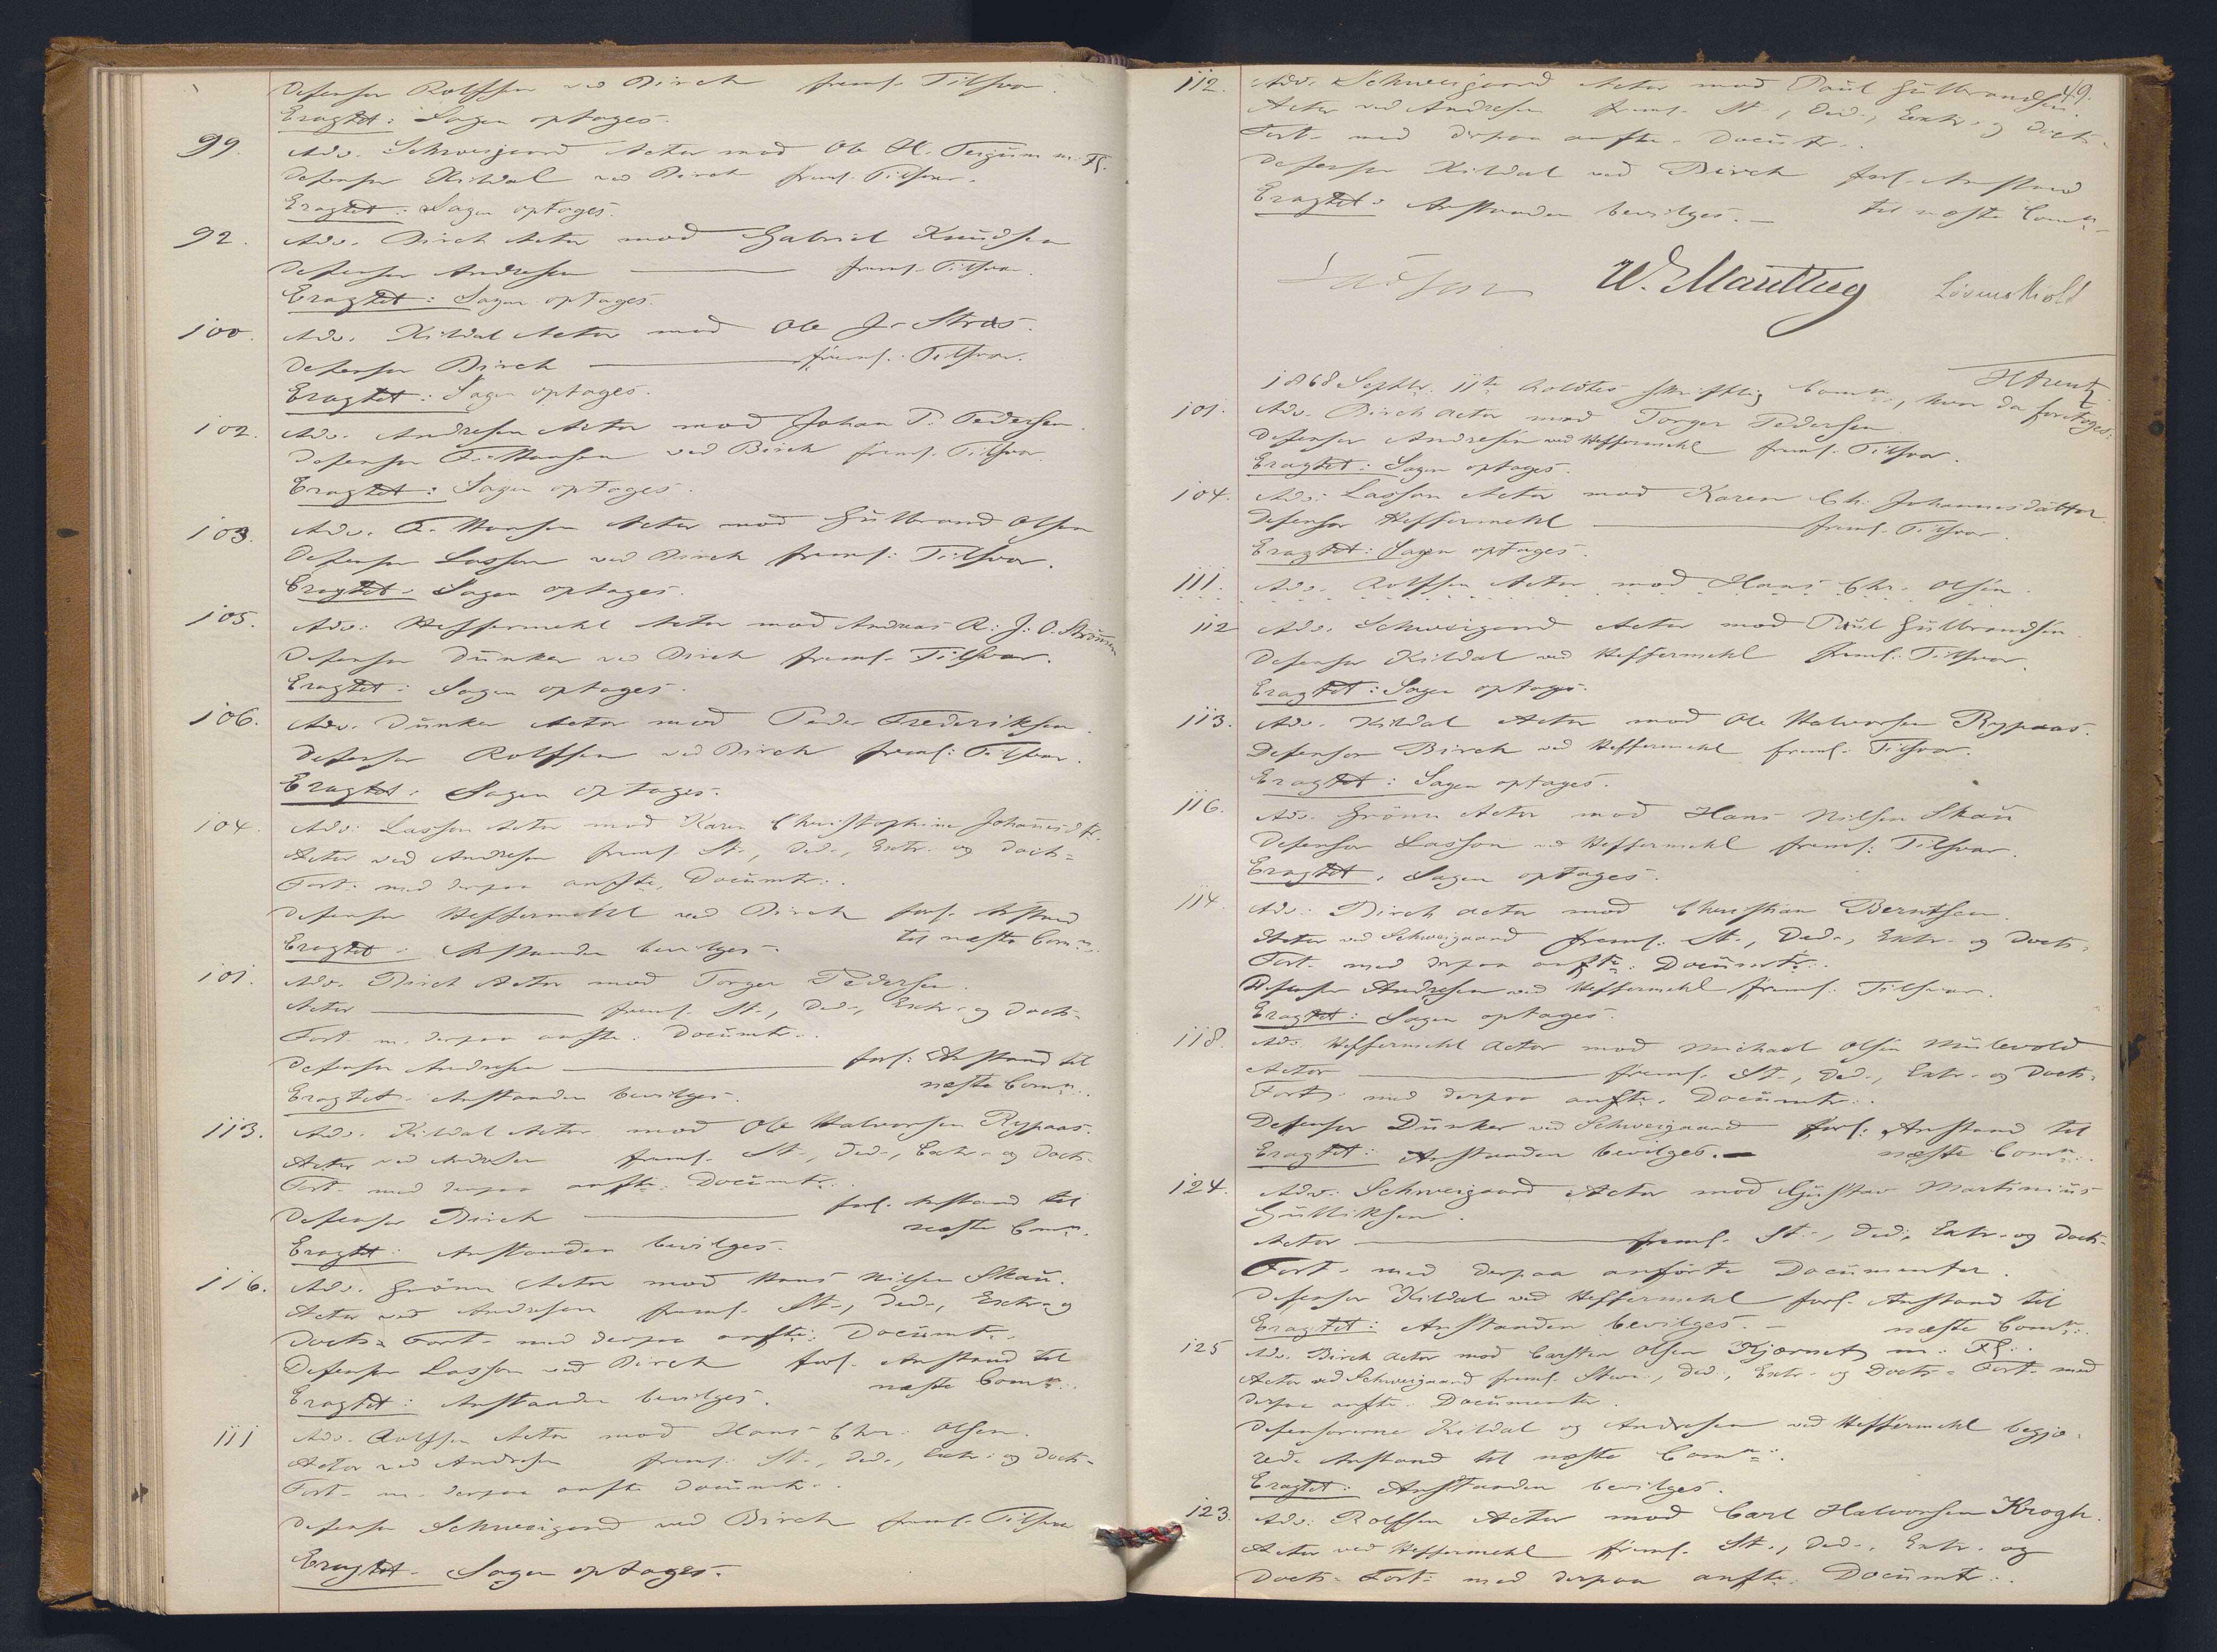 Defensor Rolffsen ved Birch freml. Tilsvar.
Eragtet: Sagen optages.
99. Adv. Schweigaard Actor mod Ole H. Teigum m. Fl.
Defensor Kildal ved Birch freml. Tilsvar.
Eragtet: Sagen optages.
92. Adv. Birch Actor mod Gabriel Knudsen
Defensor Andresen — freml. Tilsvar.
Eragtet: Sagen optages.
100. Adv. Kildal Actor mod Ole J. Strøs.
Defensor Birch — freml. Tilsvar.
Eragtet: Sagen optages.
102. Adv. Andresen Actor mod Johan P. Pedersen.
Defensor F. Hansen ved Birch freml. Tilsvar.
Eragtet: Sagen optages.
103. Adv. F. Hansen Actor mod Gulbrand Olsen
Defensor Lasson ved Birch freml: Tilsvar.
Eragtet: Sagen optages.
105. Adv: Heffermehl Actor mod Andreas A: J: O. Strömen
Defensor Dunker ved Birch freml. Tilsvar.
Eragtet: Sagen optages.
106. Adv. Dunker Actor mod Peder Frederiksen.
Defensor Rolffsen ved Birch freml: Tilsvar.
Eragtet: Sagen optages.
104. Adv: Lasson Actor mod Karen Christophine Johannesdtr.
Actor ved Andresen freml. St., Ded., Extr. og Docts=
Fort. med derpaa anfte. Documtr.
Defensor Heffermehl ved Birch forl. Anstand
Eragtet: Anstanden bevilges. til næste Comn.
101. Adv. Birch Actor mod Torger Pedersen.
Actor — freml. St., Ded., Extr. og Docts=
Fort. m. derpaa anfte. Documtr.
Defensor Andresen — forl: Anstand til
Eragtet. Anstanden bevilges. næste Comn.
113. Adv. Kildal Actor mod Ole Halvorsen Rypaas.
Actor ved Andresen freml. St., Ded., Extr. og Docts.
Fort. med derpaa anfte. Documtr.
Defensor Birch — forl. Anstand til
næste Comn.
Eragtet: Anstanden bevilges.
116. Adv. Grönn Actor mod Hans Nilsen Skau.
Actor ved Andresen freml. St., Ded., Extr. og
Docts= Fort. med derpaa anfte: Documtr.
Defensor Lasson ved Birch forl. Anstand til
Eragtet: Anstanden bevilges. næste Comn.
111 Adv. Rolffsen Actor mod Hans Chr. Olsen.
Actor ved Andresen freml: St., Ded., Extr. og Docts=
Fort. m. derpaa anfte Documtr.
Defensor Schweigaard ved Birch freml. Tilsvar
Eragtet. Sagen optages.
49.
112. Adv. Schweigaard Actor mod Paul Gulbrandsen.
Actor ved Andresen freml. St., Ded., Extr. og Docts=
Fort. med derpaa anfte. Documtr.
Defensor Kildal ved Birch forl. Anstand
Eragtet: Anstanden bevilges. — til næste Comn.
Lasson W. Manthey Lövenskiold
H Arentz
1868 Septbr. 11te holdtes skriftlig Comn., hvor da foretoges:
101. Adv. Birch Actor mod Torger Pedersen.
Defensor Andresen ved Heffermehl freml. Tilsvar.
Eragtet: Sagen optages.
104. Adv: Lasson Actor mod Karen Ch. Johannesdatter.
Defensor Heffermehl — freml. Tilsvar.
Eragtet: Sagen optages.
111. Adv. Rolffsen Actor mod Hans Chr. Olsen.
112 Adv. Schweigaard Actor mod Paul Gulbrandsen.
Defensor Kildal ved Heffermehl freml: Tilsvar.
Eragtet: Sagen optages.
113. Adv. Kildal Actor mod Ole Halvorsen Rypaas.
Defensor Birch ved Heffermehl freml. Tilsvar.
Eragtet: Sagen optages.
116. Adv. Grönn Actor mod Hans Nilsen Skau
Defensor Lasson ved Heffermehl freml: Tilsvar.
Eragtet. Sagen optages.
114. Adv: Birch Actor mod Christian Berntsen.
Actor ved Schweigaard freml: St., Ded., Extr. og Docts.
Fort. med derpaa anfte: Documtr.
Defensor Andresen ved Heffermehl freml: Tilsvar.
Eragtet: Sagen optages.
118. Adv. Heffermehl Actor mod Michael Olsen Mulevold
Actor — freml. St., Ded., Extr. og Docts.
Fort. med derpaa anfte. Documtr.
Defensor Dunker ved Schweigaard forl: Anstand til
Eragtet: Anstanden bevilges. — næste Comn.
124. Adv. Schweigaard Actor mod Gustav Martinius
Gulliksen.
Actor — freml. St., Ded., Extr. og Docts=
Fort. med derpaa anförte Documenter.
Defensor Kildal ved Heffermehl forl. Anstand til
Eragtet: Anstanden bevilges. — næste Comn.
125 Adv. Birch Actor mod Carsten Olsen Kjørnes m. Fl.
Actor ved Schweigaard freml. Stevn., Ded., Extr. og Docts= Fort. med
derpaa anfte. Documenter.
Defensorerne Kildal og Andresen ved Heffermehl begjæ-
rede Anstand til næste Comn.
Eragtet: Anstanden bevilges.
123. Adv: Rolffsen Actor mod Carl Halvorsen Krogh.
Actor ved Heffermehl freml. St., Ded., Extr. og
Docts= Fort: med derpaa anfte. Documtr.